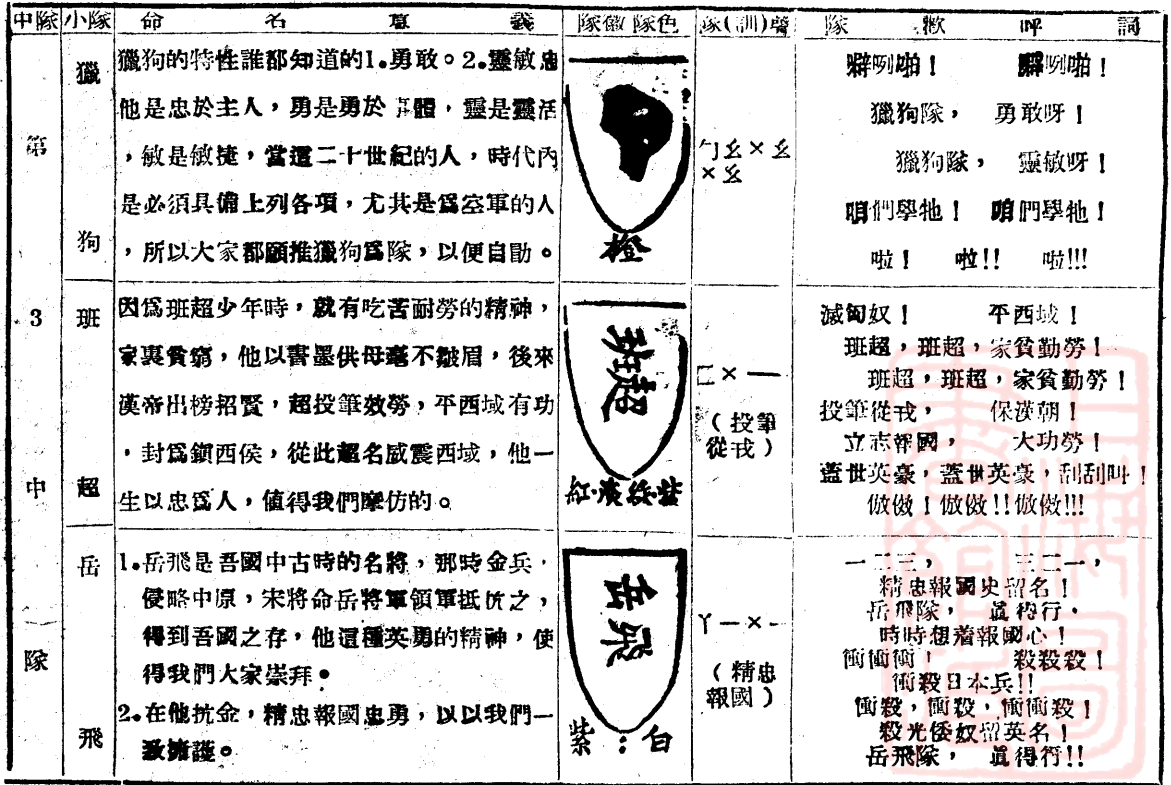 中隊 小隊 命名意義 隊徽隊色 隊(訓)號 隊歡呼詞
第3中隊
獵狗
獵狗的特性誰都知道的1.勇敢。2.靈敏忠
他是忠於主人，勇是勇於 體，靈是靈活
，敏是敏捷，當這二十世紀的人，時代內
是必須具備上列各項，尤其是爲空軍的人
，所以大家都願推獵狗爲隊，以便自勖。
橙
ㄅㄠ×ㄠ
×ㄠ
噼咧啪！ 噼咧啪！
獵狗隊， 勇敢呀！
獵狗隊， 靈敏呀！
咱們學牠！ 咱們學牠！
啦！ 啦!! 啦!!!
班超
因爲班超少年時，就有吃苦耐勞的精神，
家裏貧窮，他以書墨供母毫不皺眉，後來
漢帝出榜招賢，超投筆效勞，平西域有功
，封爲鎭西侯，從此超名威震西域，他一
生以忠爲人，値得我們摩仿的。
班超
ㄈ×一
（投筆
從戎）
滅匈奴！ 平西域！
班超，班超，家貧勤勞！
班超，班超，家貧勤勞！
投筆從戎， 保漢朝！
立志報國， 大功勞！
蓋世英豪，蓋世英豪，刮刮叫！
倣倣！倣倣!!倣倣!!!
岳飛
1.岳飛是吾國中古時的名將，那時金兵，
侵略中原，宋將命岳將軍領軍抵抗之，
得到吾國之存，他這種英勇的精神，使
得我們大家崇拜。
2.在他抗金，精忠報國忠勇，以以我們一
致擁護。
岳飛
紫：白
ㄚ一×-
（精忠
報國）
一二三， 三二一，
精忠報國史留名！
岳飛隊， 眞得行，
時時想着報國心！
衝衝衝！ 殺殺殺！
衝殺日本兵!!
衝殺，衝殺，衝衝殺！
殺光倭奴留英名！
岳飛隊， 眞得行!!